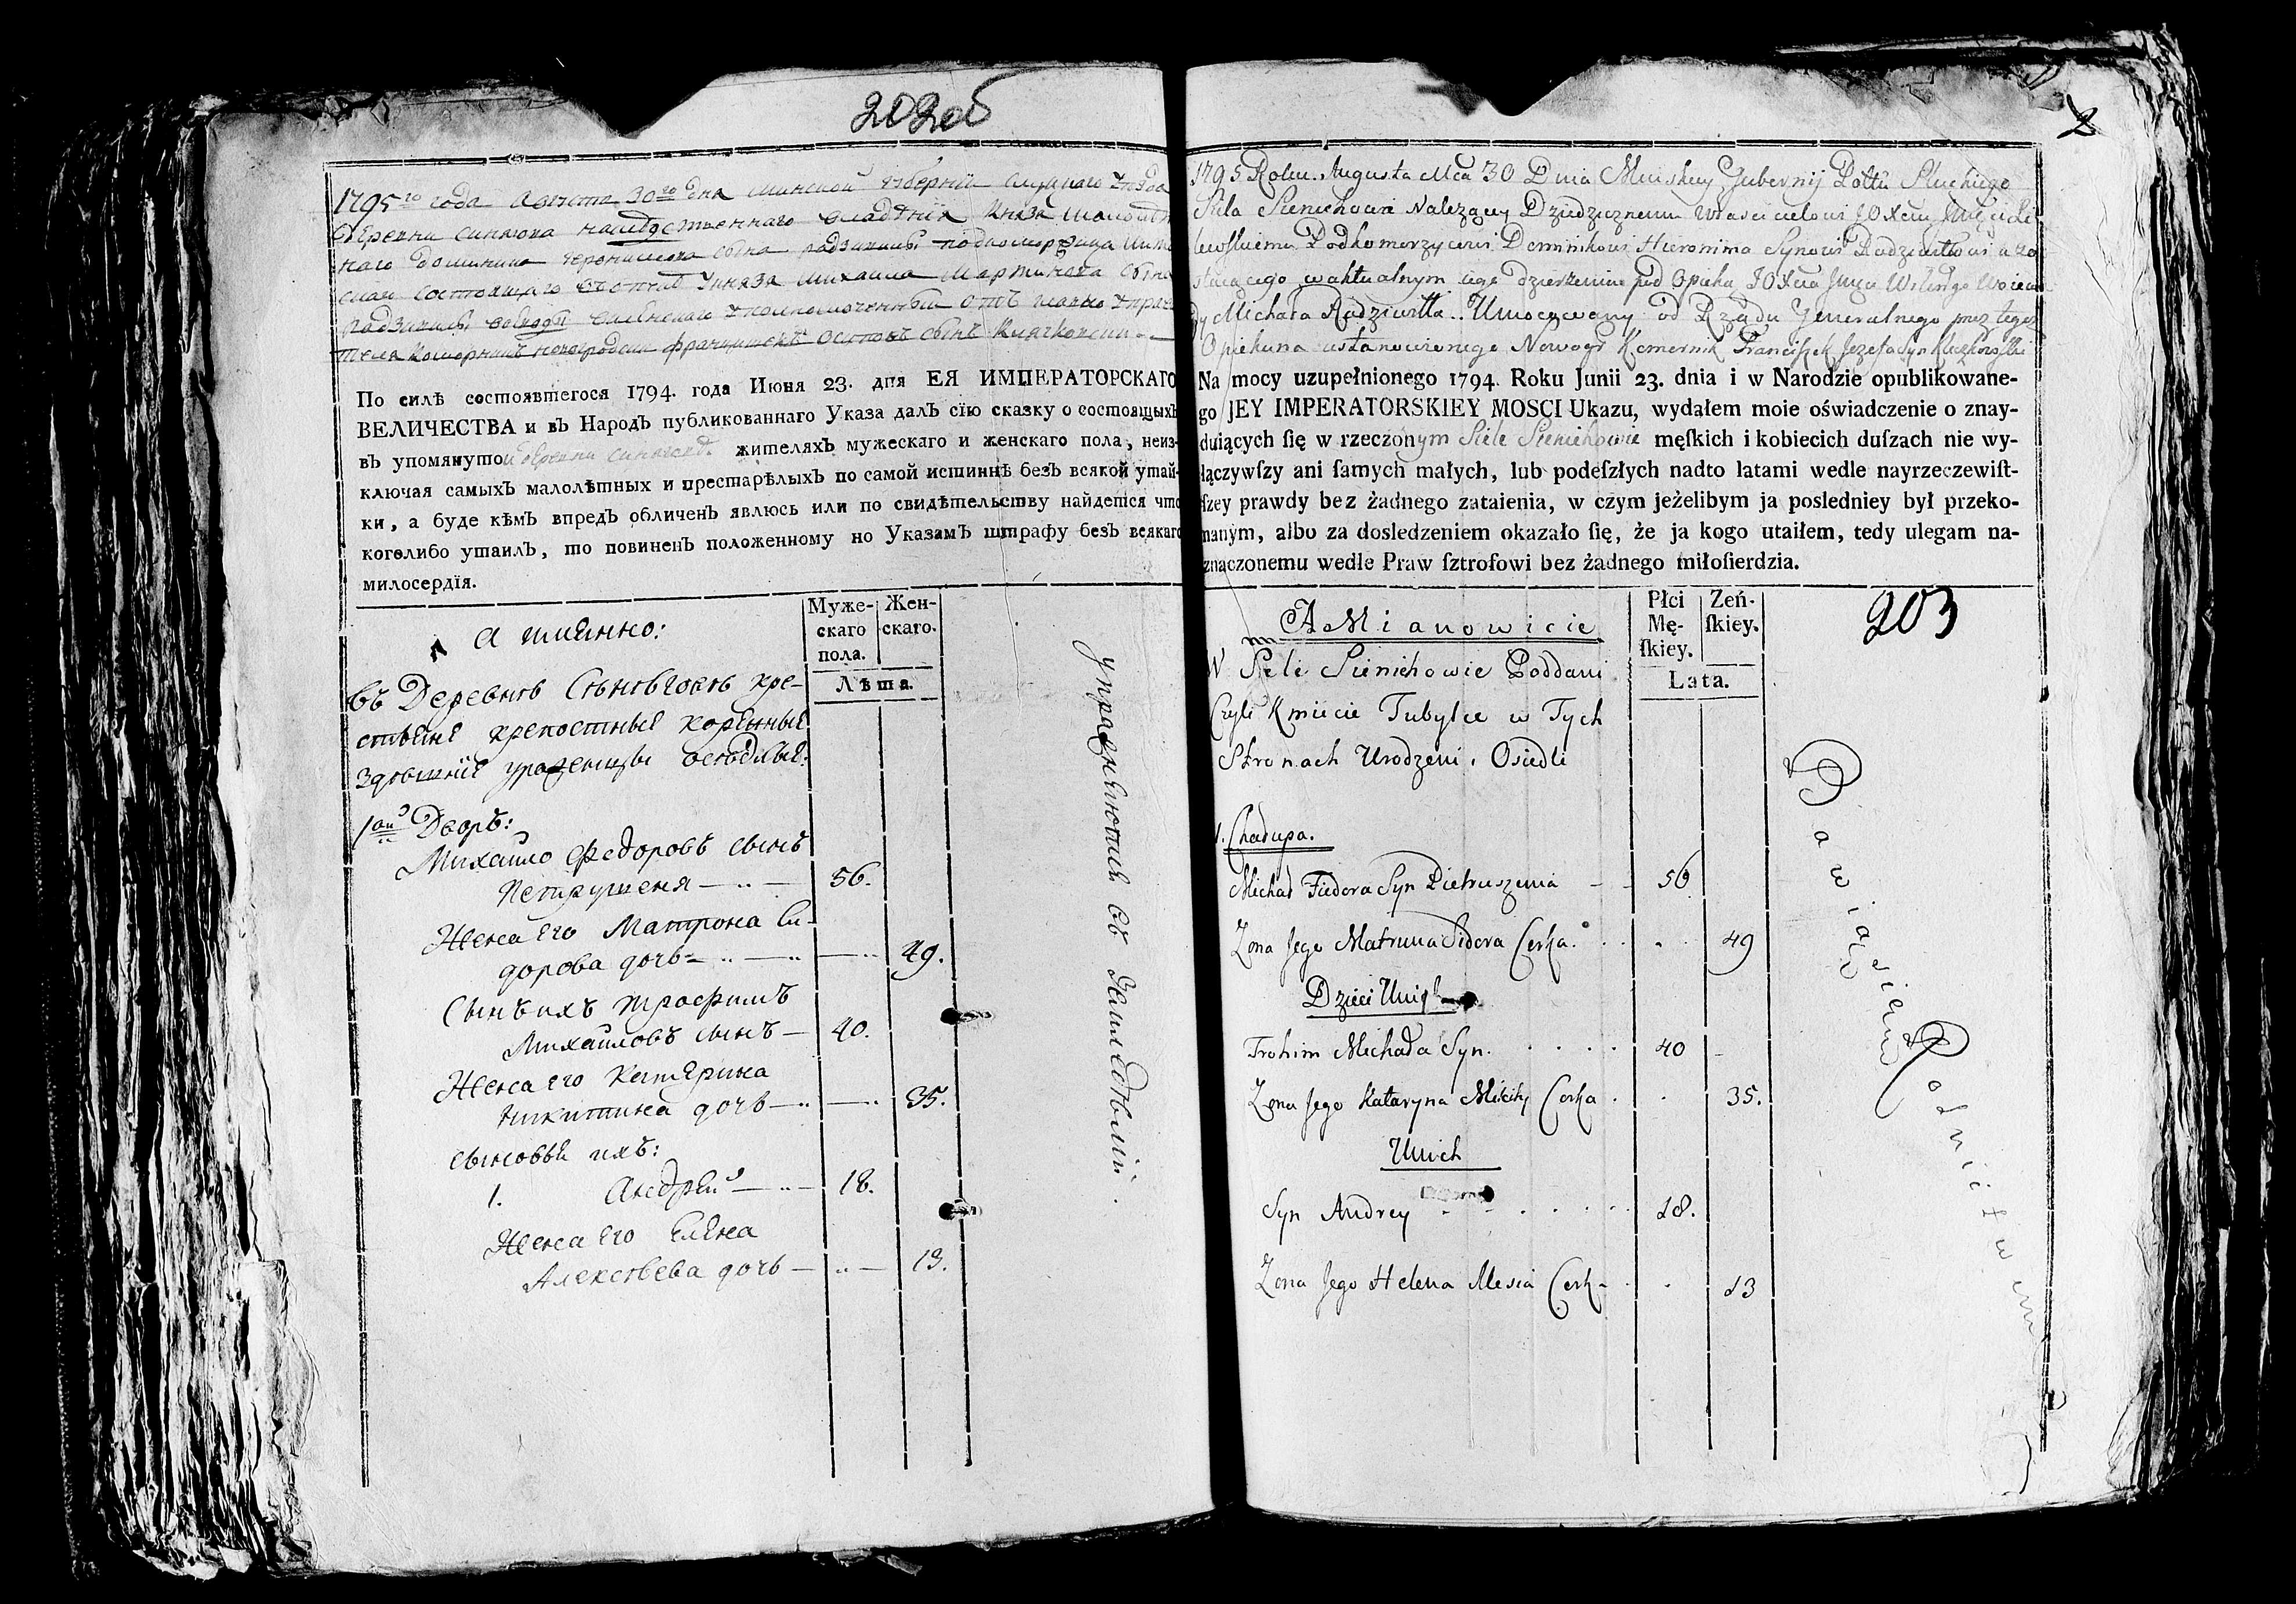 202об
1795го года Августа 30го дня Минской Губернїи Слуцкаго
деревни наследственнаго владѣнїя Князя
наго Доминика Еронимова сына Радзивила
состоящаго въ опекѣ Князя Михаила Мартинова сына
Радзивила воеводы Виленскаго уполномоченный отъ
Коморникъ Новогродски Францишекъ Осиповъ сынъ
По силѣ состоявшегося 1794. года Июня 23. дня ЕЯ ИМПЕРАТОРСКАГО
ВЕЛИЧЕСТВА и въ Народъ публикованнаго Указа далъ сїю сказку о состоящыхъ
въ упомянутой деревни жителяхъ мужескаго и женскаго пола, неиз-
ключая самыхъ малолѣтныхъ и престарѣлыхъ по самой истиннѣ безъ всякой утай-
ки, а буде кѣмъ впредъ обличенъ явлюсь или по свидѣтельству найдется что
коголибо утаилъ, то повиненъ положенному по Указамъ штрафу безъ всякаго
милосердїя.
Муже-
скаго
пола.
Жен-
скаго.
Лѣта.
а имянно:
въ Деревнѣ Сѣнѣговѣ кре-
стьяне крепостные коренные
здѣшнїе уроженцы оселые:
1ый Дворъ:
Михайло Федоровъ сынъ
Петрушеня — 56.
Жена его Матрона Си-
дорова дочь — 49.
Сынъ ихъ Трофимъ
Михайловъ сынъ — 40.
Жена его Катерина
Никитина дочь — 35.
сыновья ихъ:
1. Андрей — 18.
Жена его Елена
Алексѣева дочь — 13.
упражняются въ земледѣлїи.
1795 Roku Augusta Mca 30 Dnia Minskiey Gubernij Pottu Sluckiego
Siela Sieniehowa Nalezący Dziedzicznemu Własicielowi JO Xciu
Podkomorzycowi Dominikowi Hieronima Synowi Radziwiłłowi a zo
staiącego w aktualnym iego dzierzeniu pod Opieką JO Xcia Wilengo Woiewo
dy Michała Radziwiłła.. Umocowany od Rządu Generalnego przez tegoż
Opiekuna ustanowionego Nowogr Komornik Franciszek Jozefa Syn
Na mocy uzupełnionego 1794. Roku Junii 23. dnia i w Narodzie opublikowane-
go JEY IMPERATORSKIEY MOSCI Ukazu, wydałem moie oświadczenie o znay-
duiących ſię w rzeczonym Siele Sieniehowie męſkich i kobiecich duſzach nie wy-
łączywſzy ani ſamych małych, lub podeſzłych nadto latami wedle nayrzeczewiſt-
ſzey prawdy bez żadnego zataienia, w czym jeżelibym ja posledniey był przeko-
nanym, albo za dosledzeniem okazało ſię, że ja kogo utaiłem, tedy ulegam na-
znaczonemu wedle Praw ſztrofowi bez żadnego miłoſierdzia.
Płci
Mę-
ſkiey.
Zeń-
ſkiey.
Lata.
203
A Mianowicie
W Siele Sieniehowie Poddani
Czyli Kmiecie Tubylce w Tych
Stronach Urodzeni i Osiedli
1. Chałupa.
Michał Fiedora Syn Pietruszenia — 56
Zona Jego Matruna Sidora Corka. 49
Dzieci Unich
Trohim Michała Syn. 40
Zona Jego Kataryna Mikity Corka 35.
Unich
Syn Andrey 18.
Zona Jego Helena Alesia Corka 13
Bawią się Rolnictwem